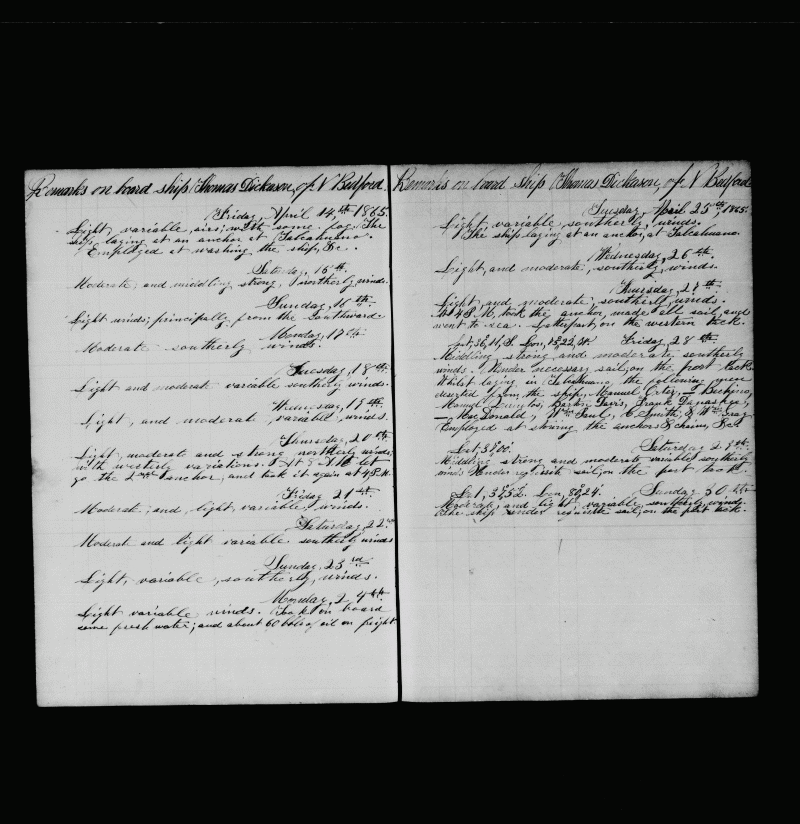 Remarks on board ship Thomas Dickason, of N Bedford.
Friday, April 14,th 1865.
Light, variable, airs; with some fog. The
ship laying at an anchor at Talcahuano.
Employed at washing the ship, &c.
Saturday, 15th.
Moderate; and middling strong, northerly winds.
Sunday, 16th.
Light winds; principally, from the Southward.
Monday, 17th
Moderate southerly winds.
Tuesday, 18th
Light and moderate variable southerly winds.
Wednesday, 19th.
Light, and moderate variable, winds.
Thursday, 20th
Light, moderate and strong northerly winds;
with westerly variations. At 8 A.M. let
go the 2nd anchor, and took it again at 4 P.M.
Friday 21st.
Moderate; and light variable, winds.
Saturday, 22nd
Moderate and light variable southerly winds
Sunday, 23rd
Light, variable, southerly, winds.
Monday, 24th.
Light variable winds. Took on board
some fresh water; and about 60 bbls of oil on freight
Remarks on board ship Thomas Dickason, of N Bedford
Tuesday, April 25th, 1865.
Light, variable, southerly, winds.
The ship laying at an anchor, at Talcahuano.
Wednesday, 26th.
Light, and moderate, southerly, winds.
Thursday, 27th
Light and moderate, southerly winds.
At 4 P.M, took the anchor, made all sail, and
went to sea. Latter part, on the western tack.
Lat, 36,11, S. Lon, Friday, 28th
Middling strong and moderate southerly
winds. Under necessary sail, on the port tack.
Whilst laying in Talcahuano, the following men
deserted from the ship, Manuel
Manuel Aaron Davis, Frank
McDonald, Wm Paul, C. Smith, & Wm Gray.
Employed at stowing the anchors & chains, &c.
Saturday 29th.
Middling strong and moderate variable southerly
winds. Under requisite sail, on the port tack.
Lat, 35,52. Lon, 80,24. Sunday 30th
Moderate, and light, variable, southerly, winds.
The ship under requisite sail, on the port tack.